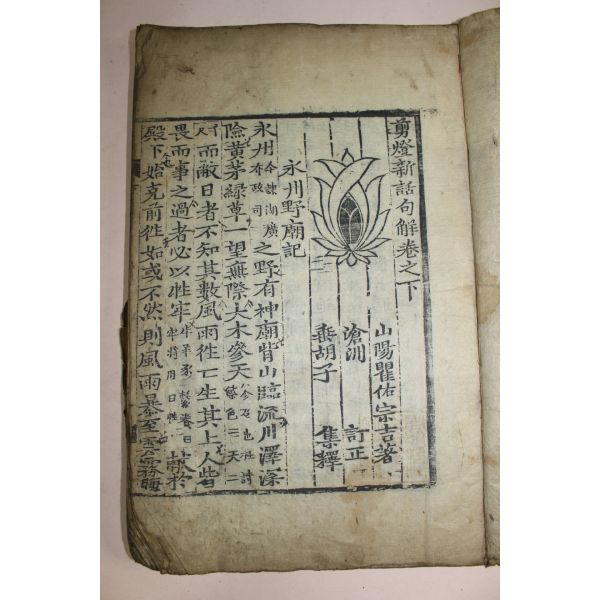 剪燈新話句解卷之下
山陽瞿佑宗吉著
滄洲 訂正
垂胡子 集釋
永州野廟記
永州今隷湖廣布政司之野有神廟背山臨流川澤深
險黃茅綠草一望無際大木參天而
蔽日者不知其數風雨徃徃生其上人皆
畏而事之過者必以牲牢獻於
殿下始克前徃如或不然則風雨暴至雲霧晦